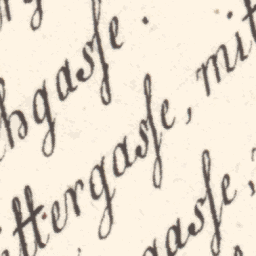 hgasse.
ittergasse, mit
gasse,